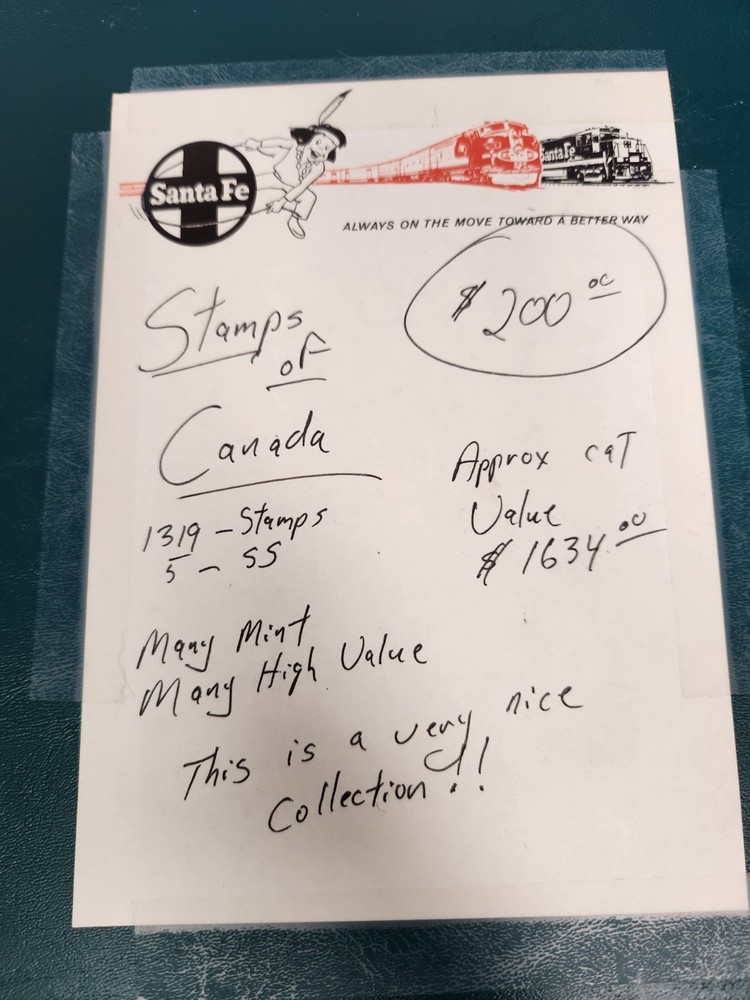 Santa Fe
Santa Fe
ALWAYS ON THE MOVE TOWARD A BETTER WAY
$200.00
Stamps
of
Canada
1319 - Stamps
5 - SS
Approx cat
Value
$1634.00
Many Mint
Many High Value
This is a very nice
Collection!!